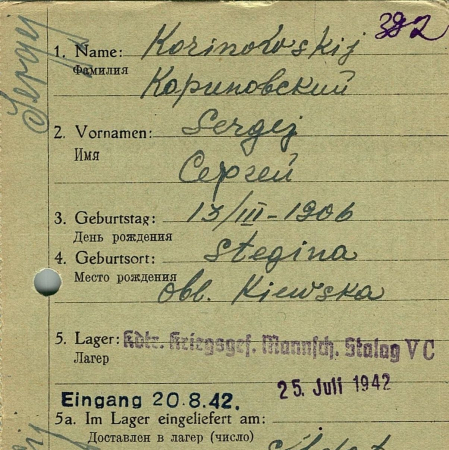 392
Sergej
1. Name: Korinowskij
Фамилия Кориновский
2. Vornamen: Sergej
Имя Сергей
3. Geburtstag: 13/III-1906
День рождения
4. Geburtsort: Stegina
Место рождения obl. Kiewska
5. Lager: Kdtr. Kriegsgef. Mannsch. Stalag V C
Лагер
25. Juli 1942
Eingang 20.8.42.
5a. Im Lager eingeliefert am:
Доставлен в лагер (число)